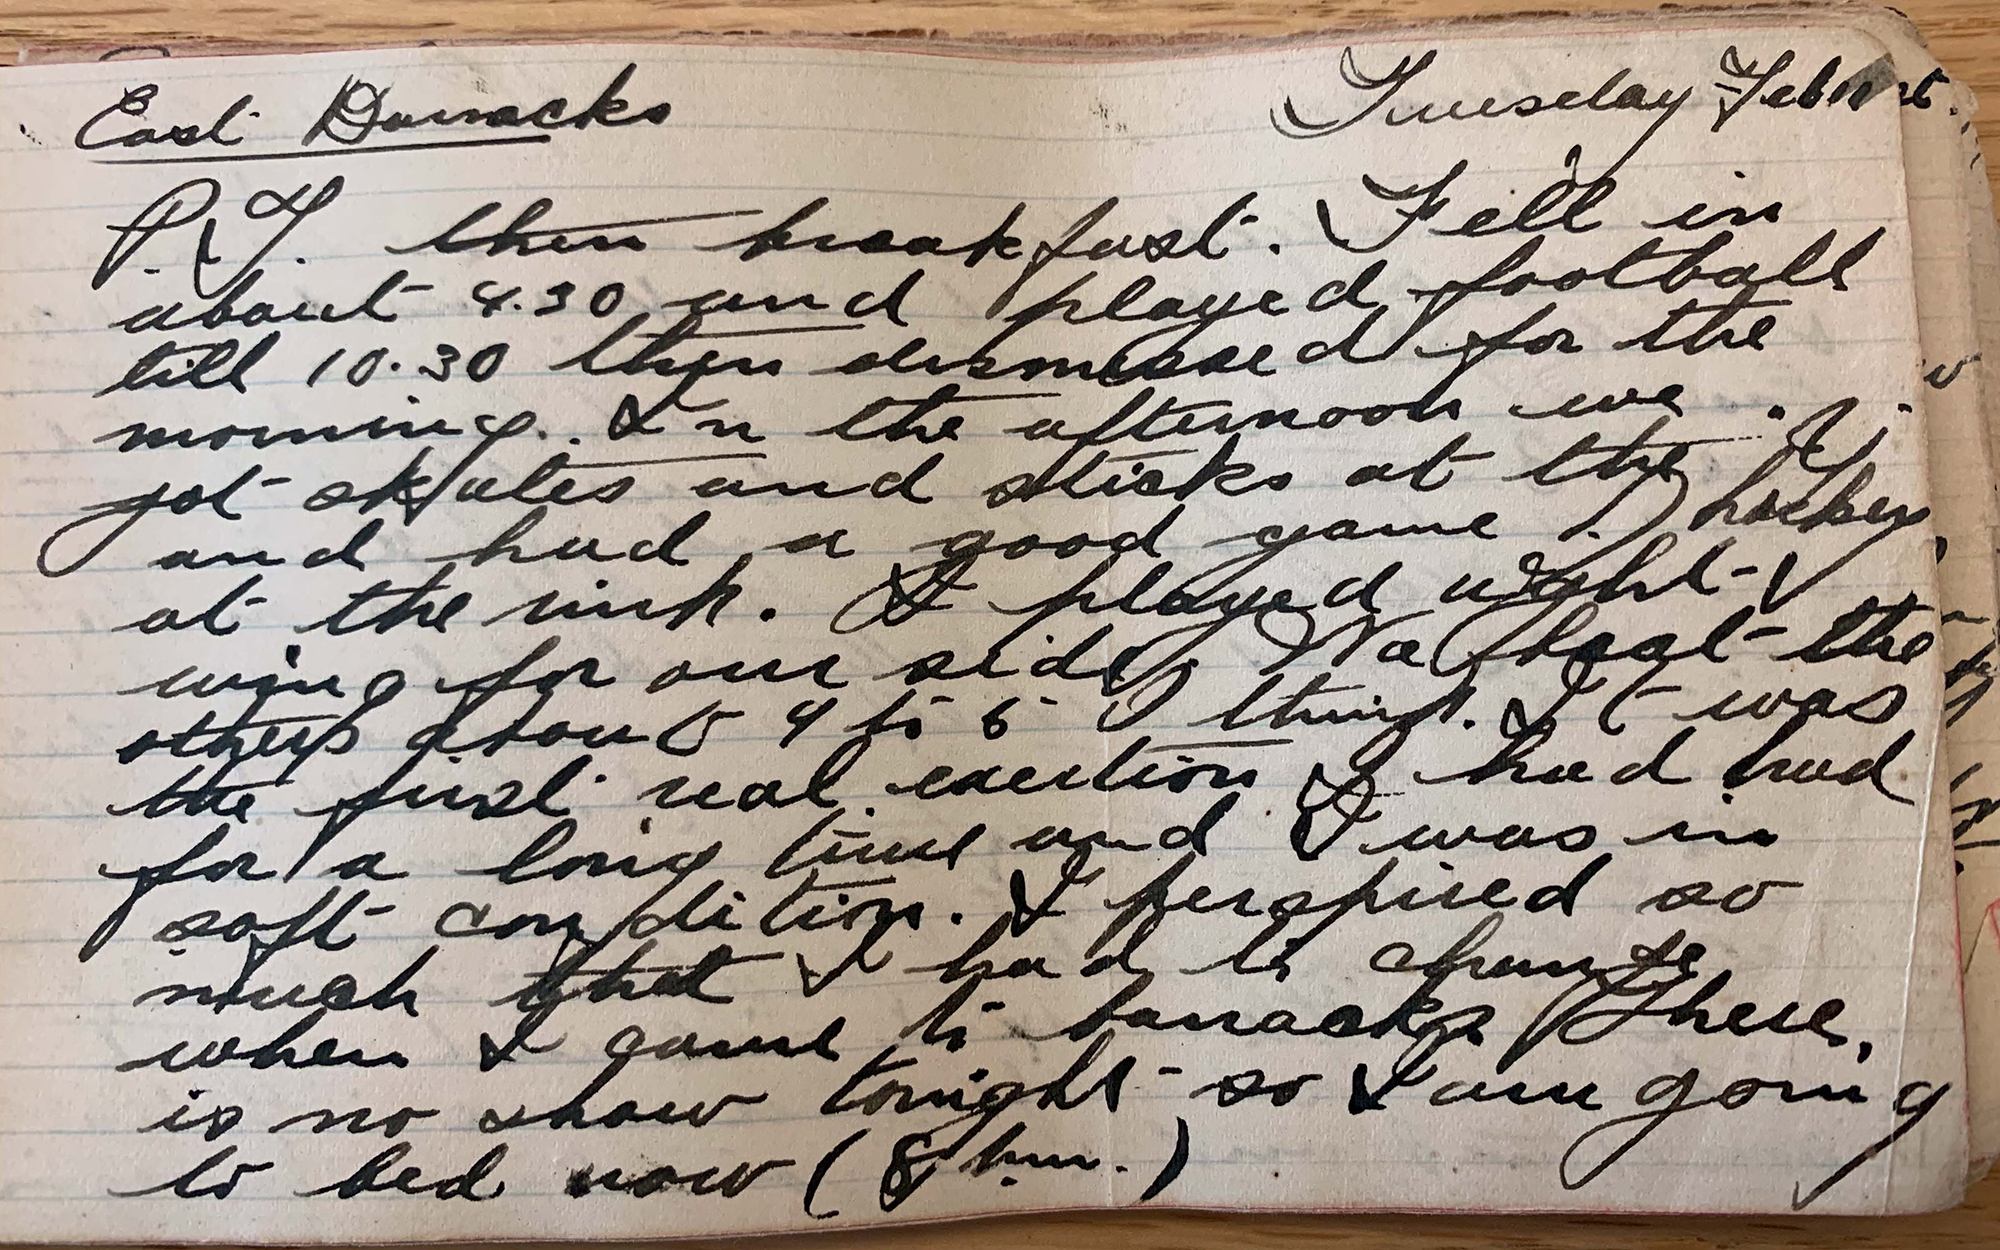 East Barracks Tuesday Feb
P.T. then breakfast. Fell in
about 8.30 and played football
till 10.30 then dismissed for the
morning. In the afternoon we
got skates and sticks at the Y.
and had a good game hockey
at the rink. I played right
wing for our side. We beat the
others about 9 to 6 I think. It was
the first real exertion I had had
for a long time and I was in
soft condition. I perspired so
much that I had to change
when I came to barracks There
is no show tonight so I am going
to bed now (8 p.m.)